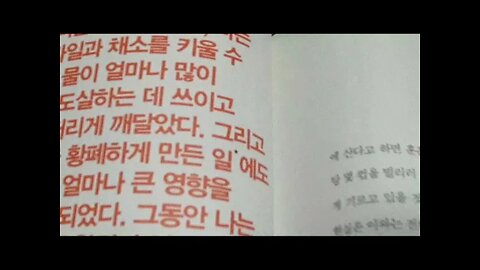 과일과 채소를 키울 수
물이 얼마나 많이
도살하는 데 쓰이고
깨달았다. 그리고
황폐하게 만든 일에도
얼마나 큰 영향을
되었다. 그동안 나는
에 산다고 하면 흔
몇 컵을 빌리러
게 기르고 있을
현실은 이와는